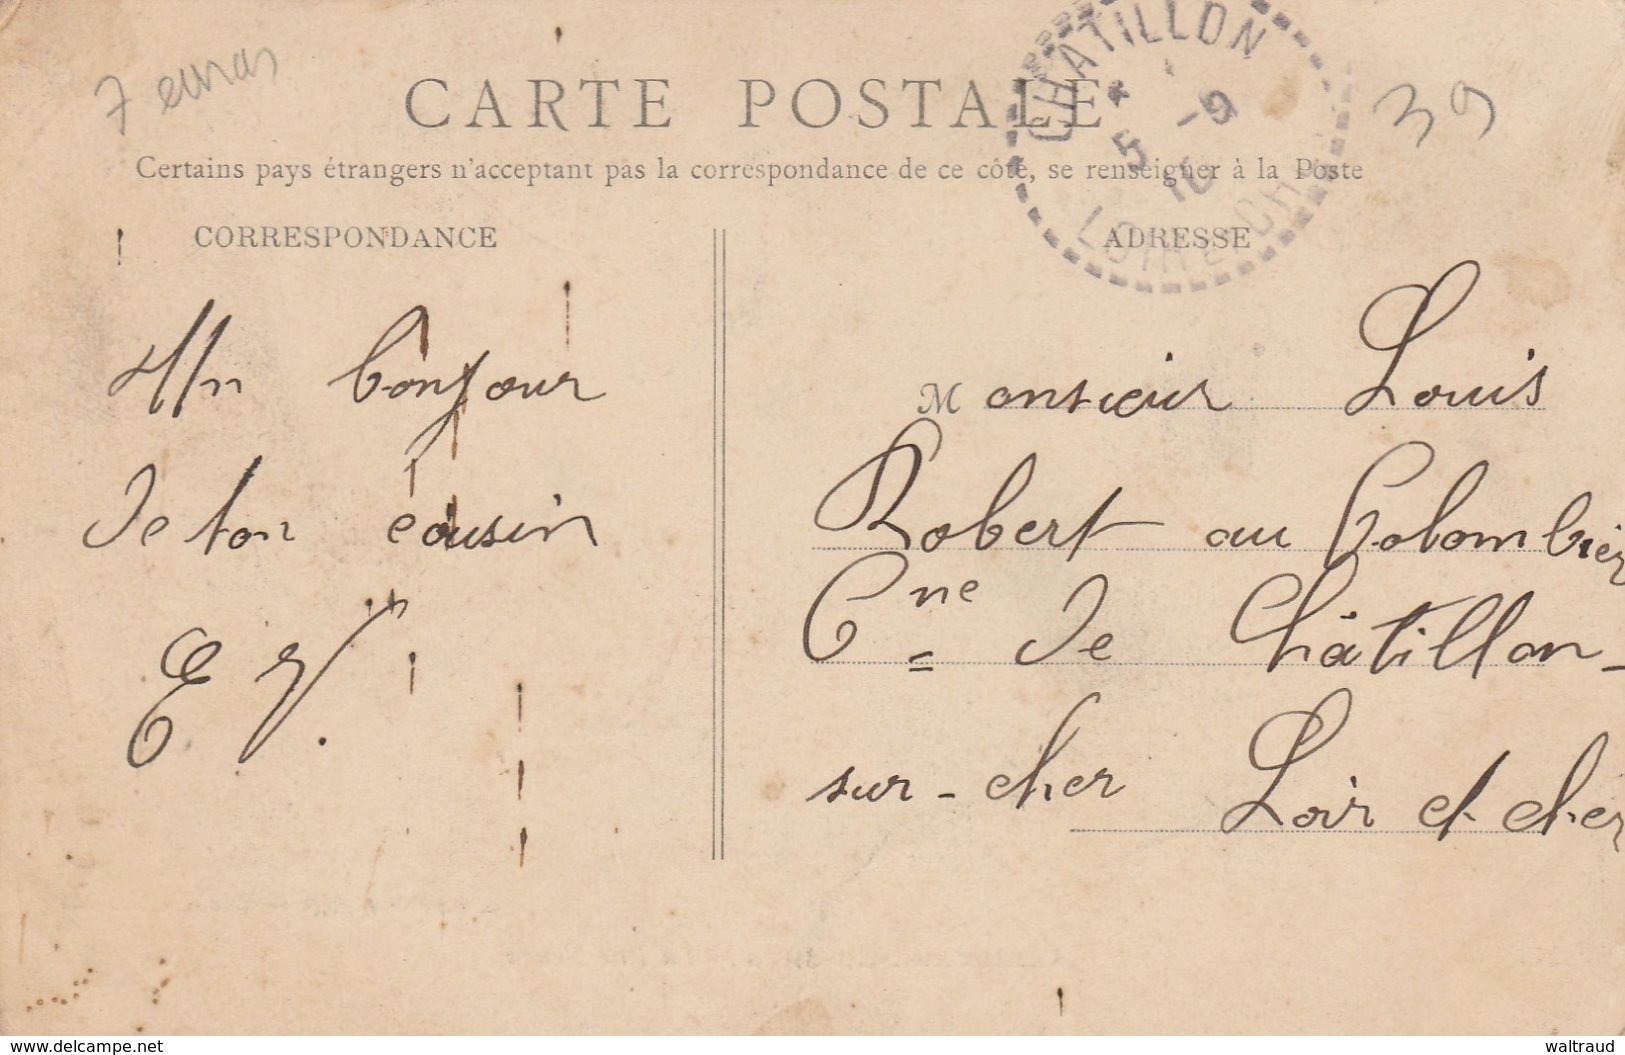 7 euros
CARTE POSTALE
39
CHATILLON
5 -9
10
LOIR & CH
Certains pays étrangers n'acceptant pas la correspondance de ce côté, se renseigner à la Poste
CORRESPONDANCE
Un bonjour
de ton cousin
E V.
ADRESSE
Monsieur Louis
Robert au Colombier
Cne de Châtillon-
sur-cher Loir et cher
www.delcampe.net
waltraud